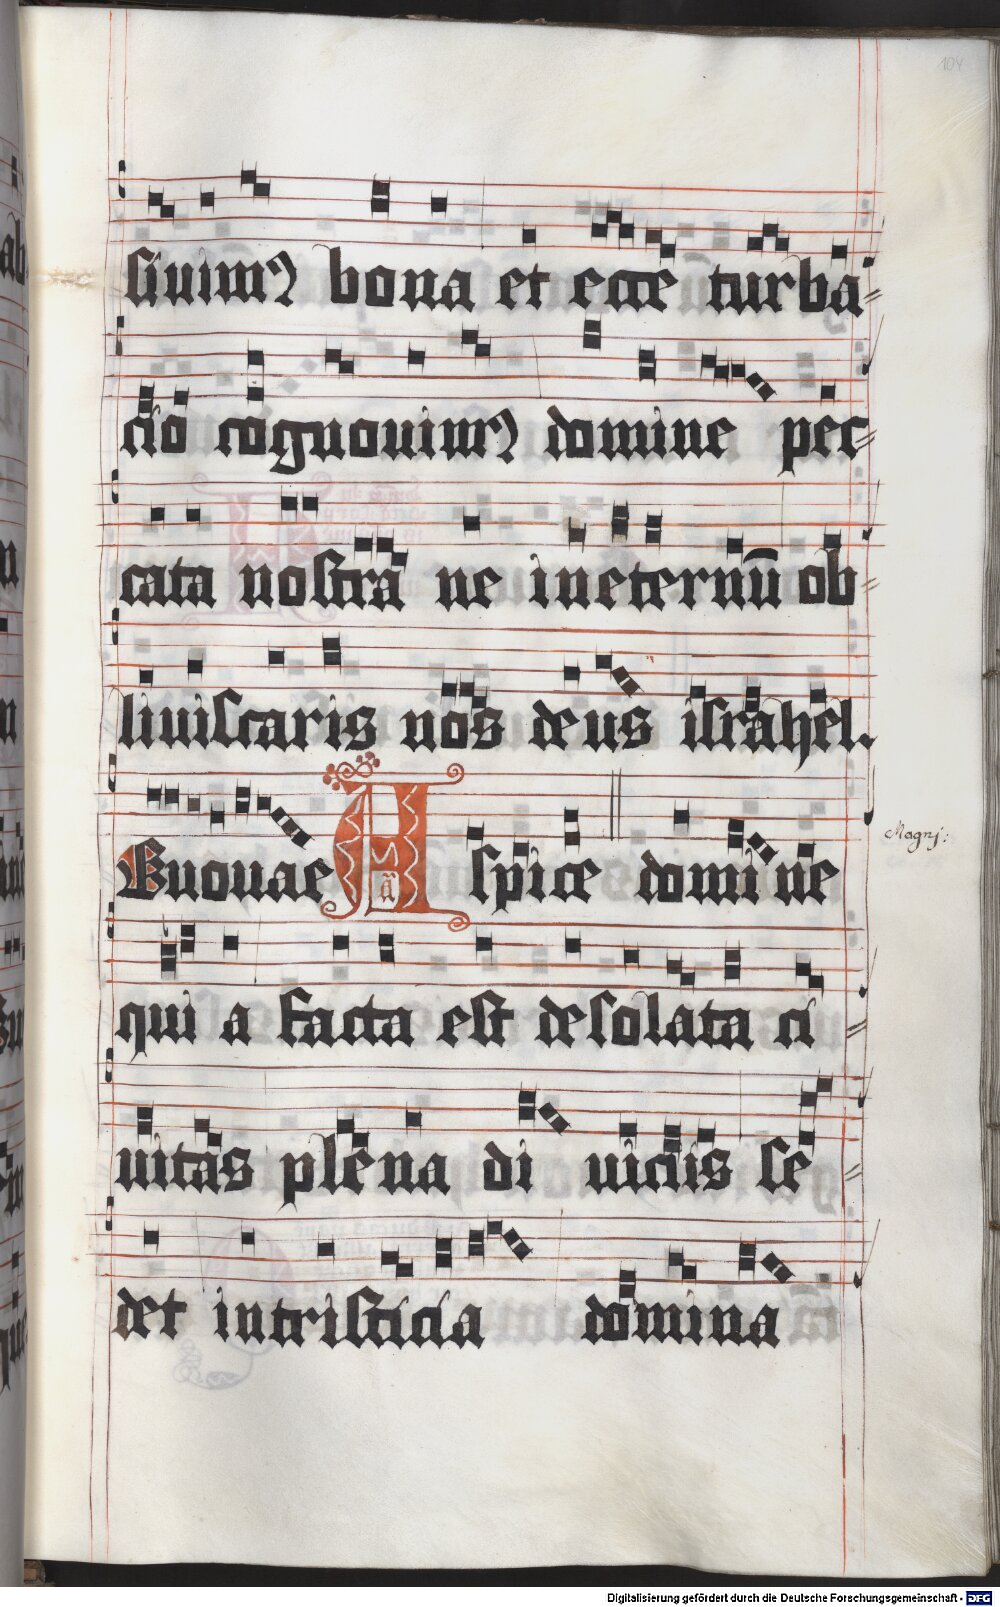 104
siuimꝰ bona et ecce turba⸗
cio cognouimꝰ domine pec⸗
cata nostra ne ineternū ob⸗
liuiscaris nos deus israhel.
Euouae Aspice domine
Magnj:
quia facta est desolata ci⸗
uitas plena diuiciis se⸗
det intristicia domina
Digitalisierung gefördert durch die Deutsche Forschungsgemeinschaft - DFG